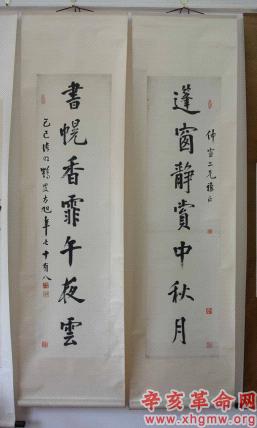 蓬窗静賞中秋月
仲宣二兄雅正
書幌香霏午夜雲
己巳清明鶴叟方旭年七十有八
辛亥革命网
www.xhgmw.org